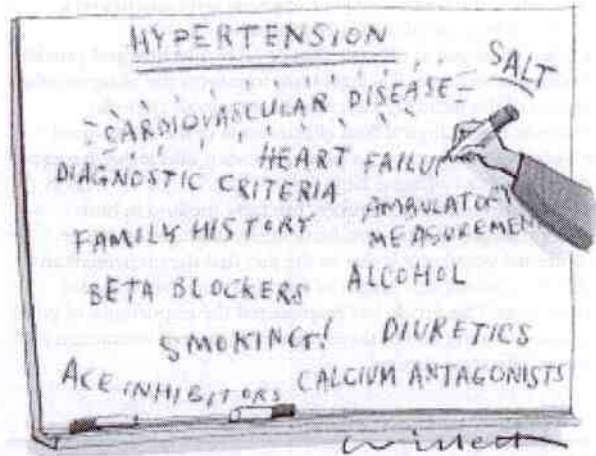 HYPERTENSION
SALT
CARDIOVASCULAR DISEASE
HEART FAILU
DIAGNOSTIC CRITERIA
AMBULATORY
MEASUREMEN
FAMILY HISTORY
BETA BLOCKERS
ALCOHOL
SMOKING!
DIURETICS
ACE INHIBITORS
CALCIUM ANTAGONISTS